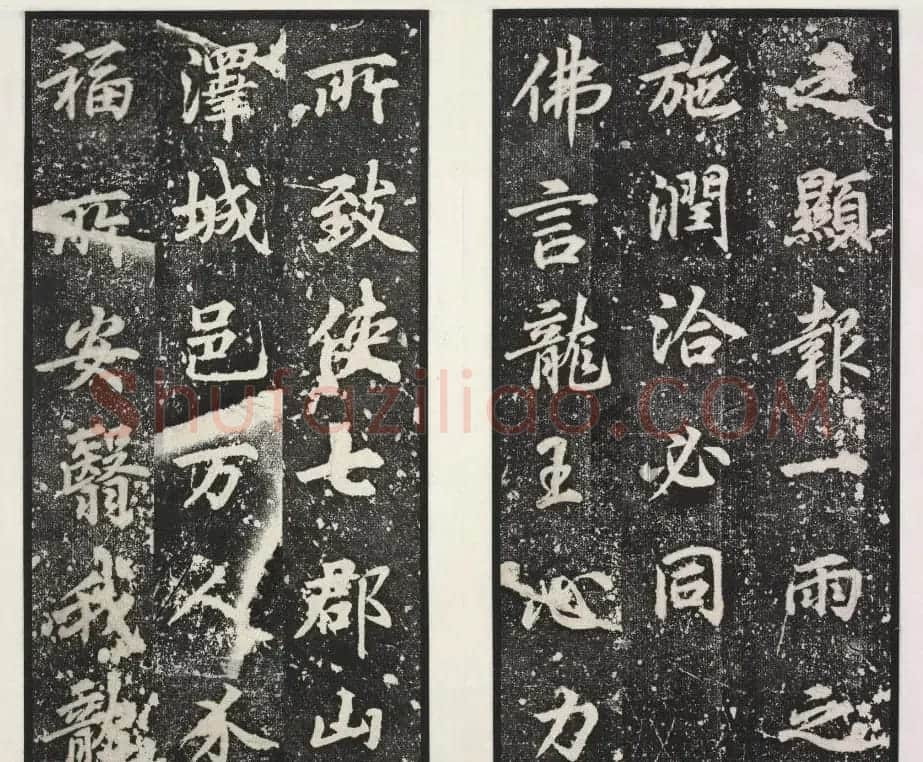 之顯報一雨之
施潤洽必同
佛言龍王心力
所致使七郡山
澤城邑万人水
福所安翳我龍
Shufaziliao.COM